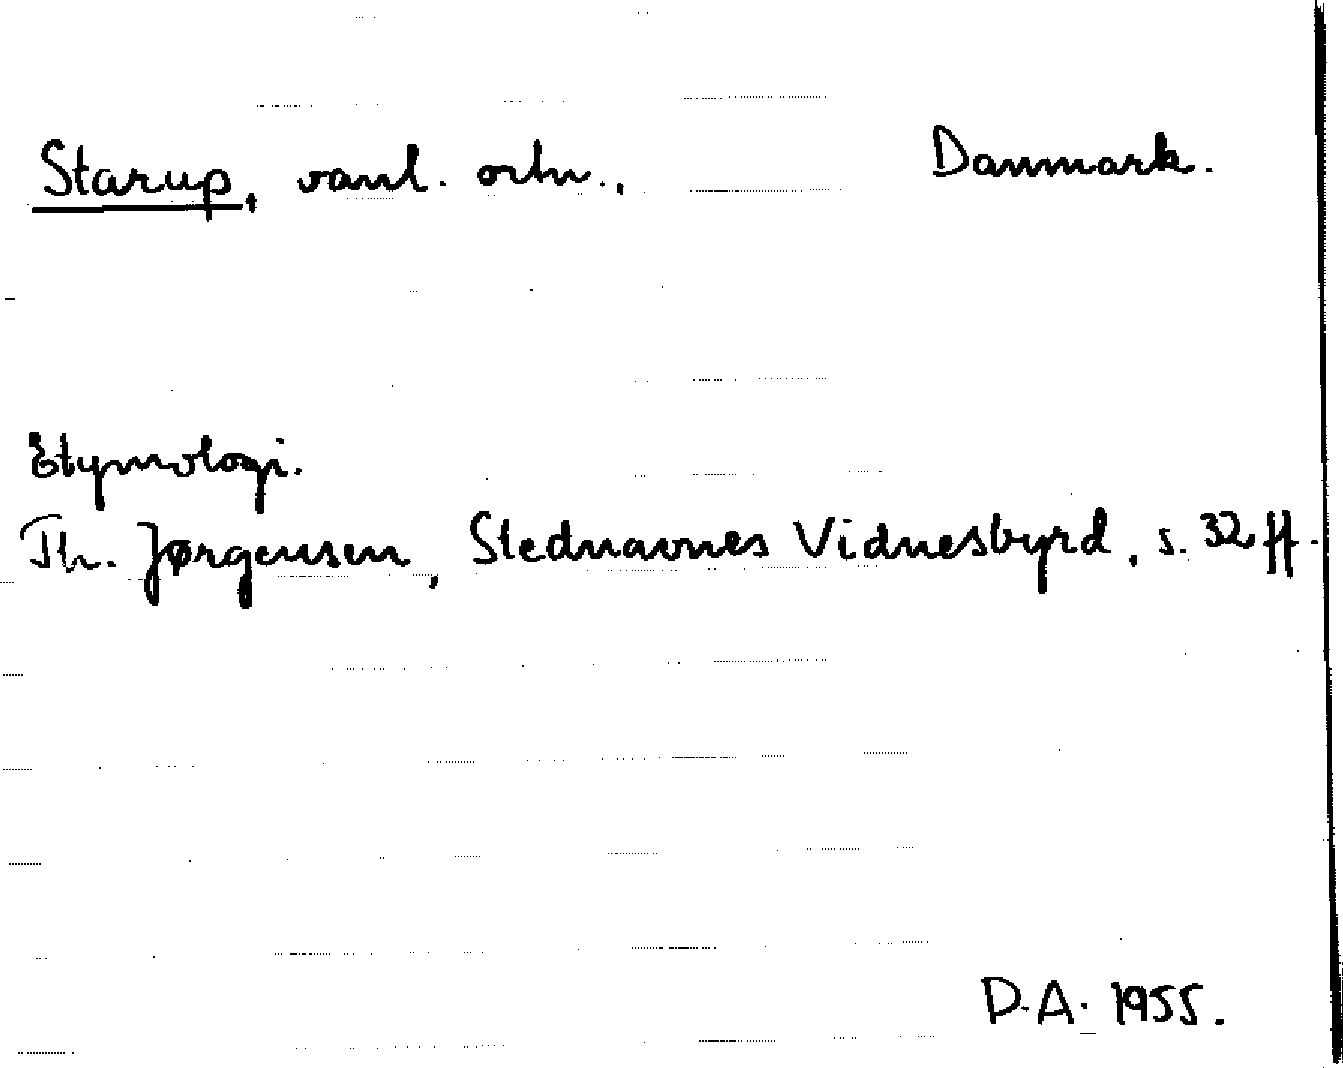 Starup, vanl. ortn., Danmark.
Etymologi.
Th. Jørgensen, Stednavnes Vidnesbyrd, s. 32 ff.
D.A. 1955.